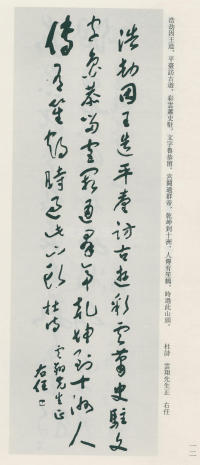 浩劫因王造，平臺訪古遊，彩雲蕭史駐，文字魯恭留，宮闕通群帝，乾坤到十洲，人傳有笙鶴，時過此山頭。
杜詩　雲翔先生正　右任
浩劫因王造平臺訪古遊彩雲蕭史駐文
字魯恭留宮闕通群帝乾坤到十洲人
傳有笙鶴時過此山頭 杜詩 雲翔先生正
右任
一二